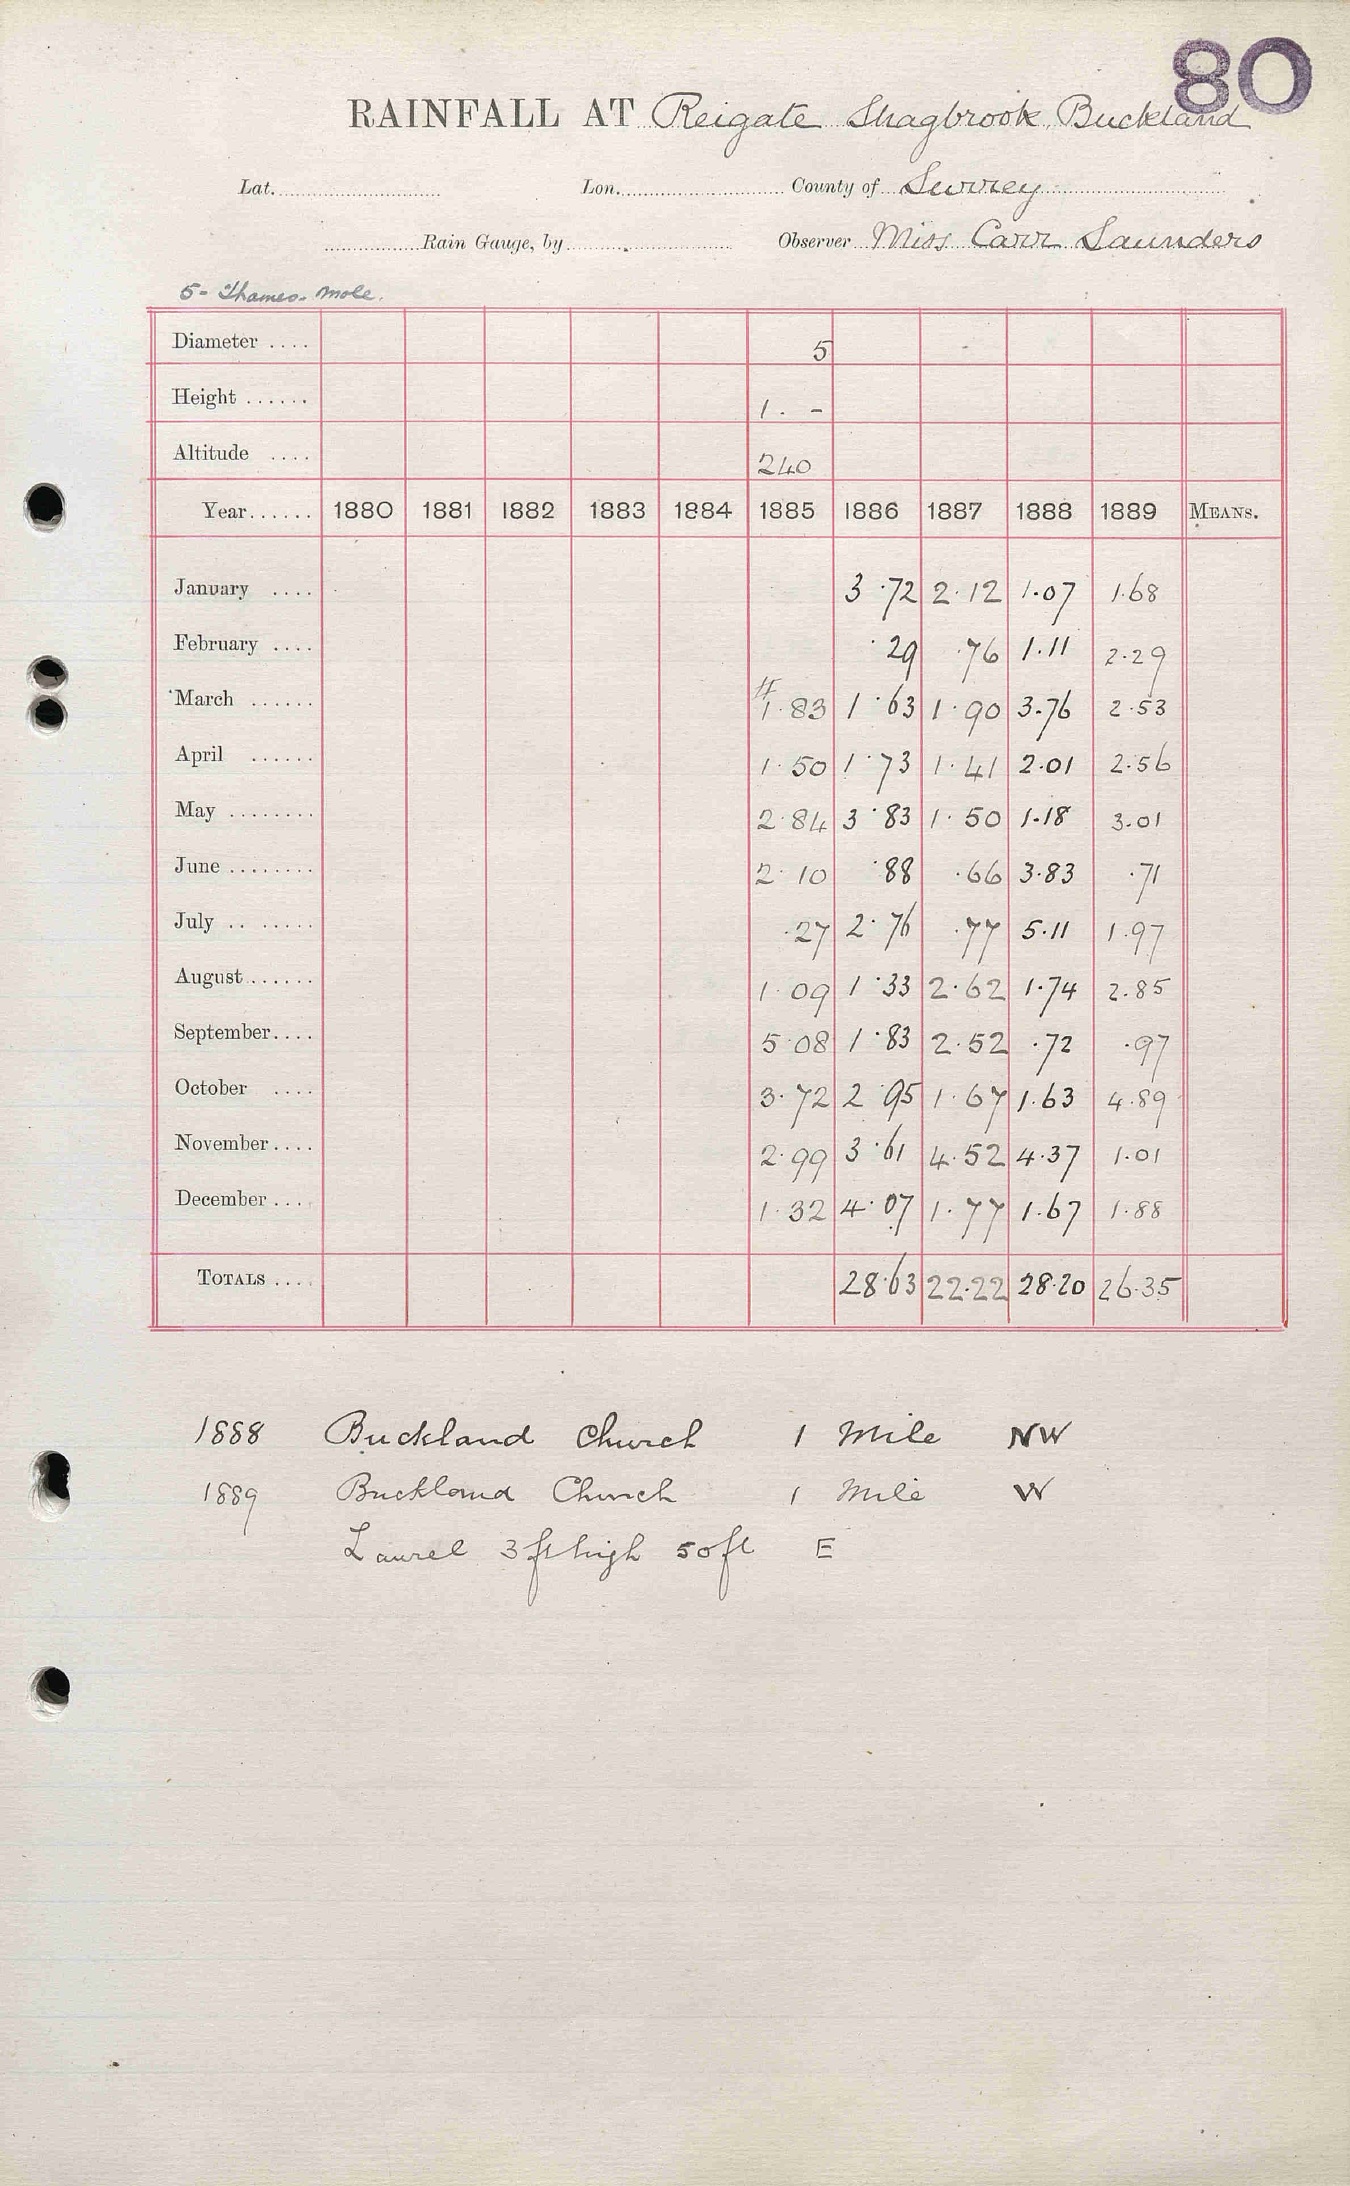 80
RAINFALL AT Reigate Shagbrook Buckland
Lat. Lon. County of Surrey
Rain Gauge, by Observer Miss Carr Saunders
5- Thames. Mole.
Diameter .... 5
Height ...... 1. -
Altitude .... 240
Year...... 1880 1881 1882 1883 1884 1885 1886 1887 1888 1889 MEANS.
January .... 3.72 2.12 1.07 1.68
February .... .29 .76 1.11 2.29
March ...... 1.83 1.63 1.90 3.76 2.53
April ...... 1.50 1.73 1.41 2.01 2.56
May ........ 2.84 3.83 1.50 1.18 3.01
June ........ 2.10 .88 .66 3.83 .71
July .. ..... .27 2.76 .77 5.11 1.97
August...... 1.09 1.33 2.62 1.74 2.85
September.... 5.08 1.83 2.52 .72 .97
October .... 3.72 2.95 1.67 1.63 4.89
November.... 2.99 3.61 4.52 4.37 1.01
December .... 1.32 4.07 1.77 1.67 1.88
TOTALS .... 28.63 22.22 28.20 26.35
1888 Buckland Church 1 Mile NW
1889 Buckland Church 1 Mile W
Laurel 3 ft high 50 ft E